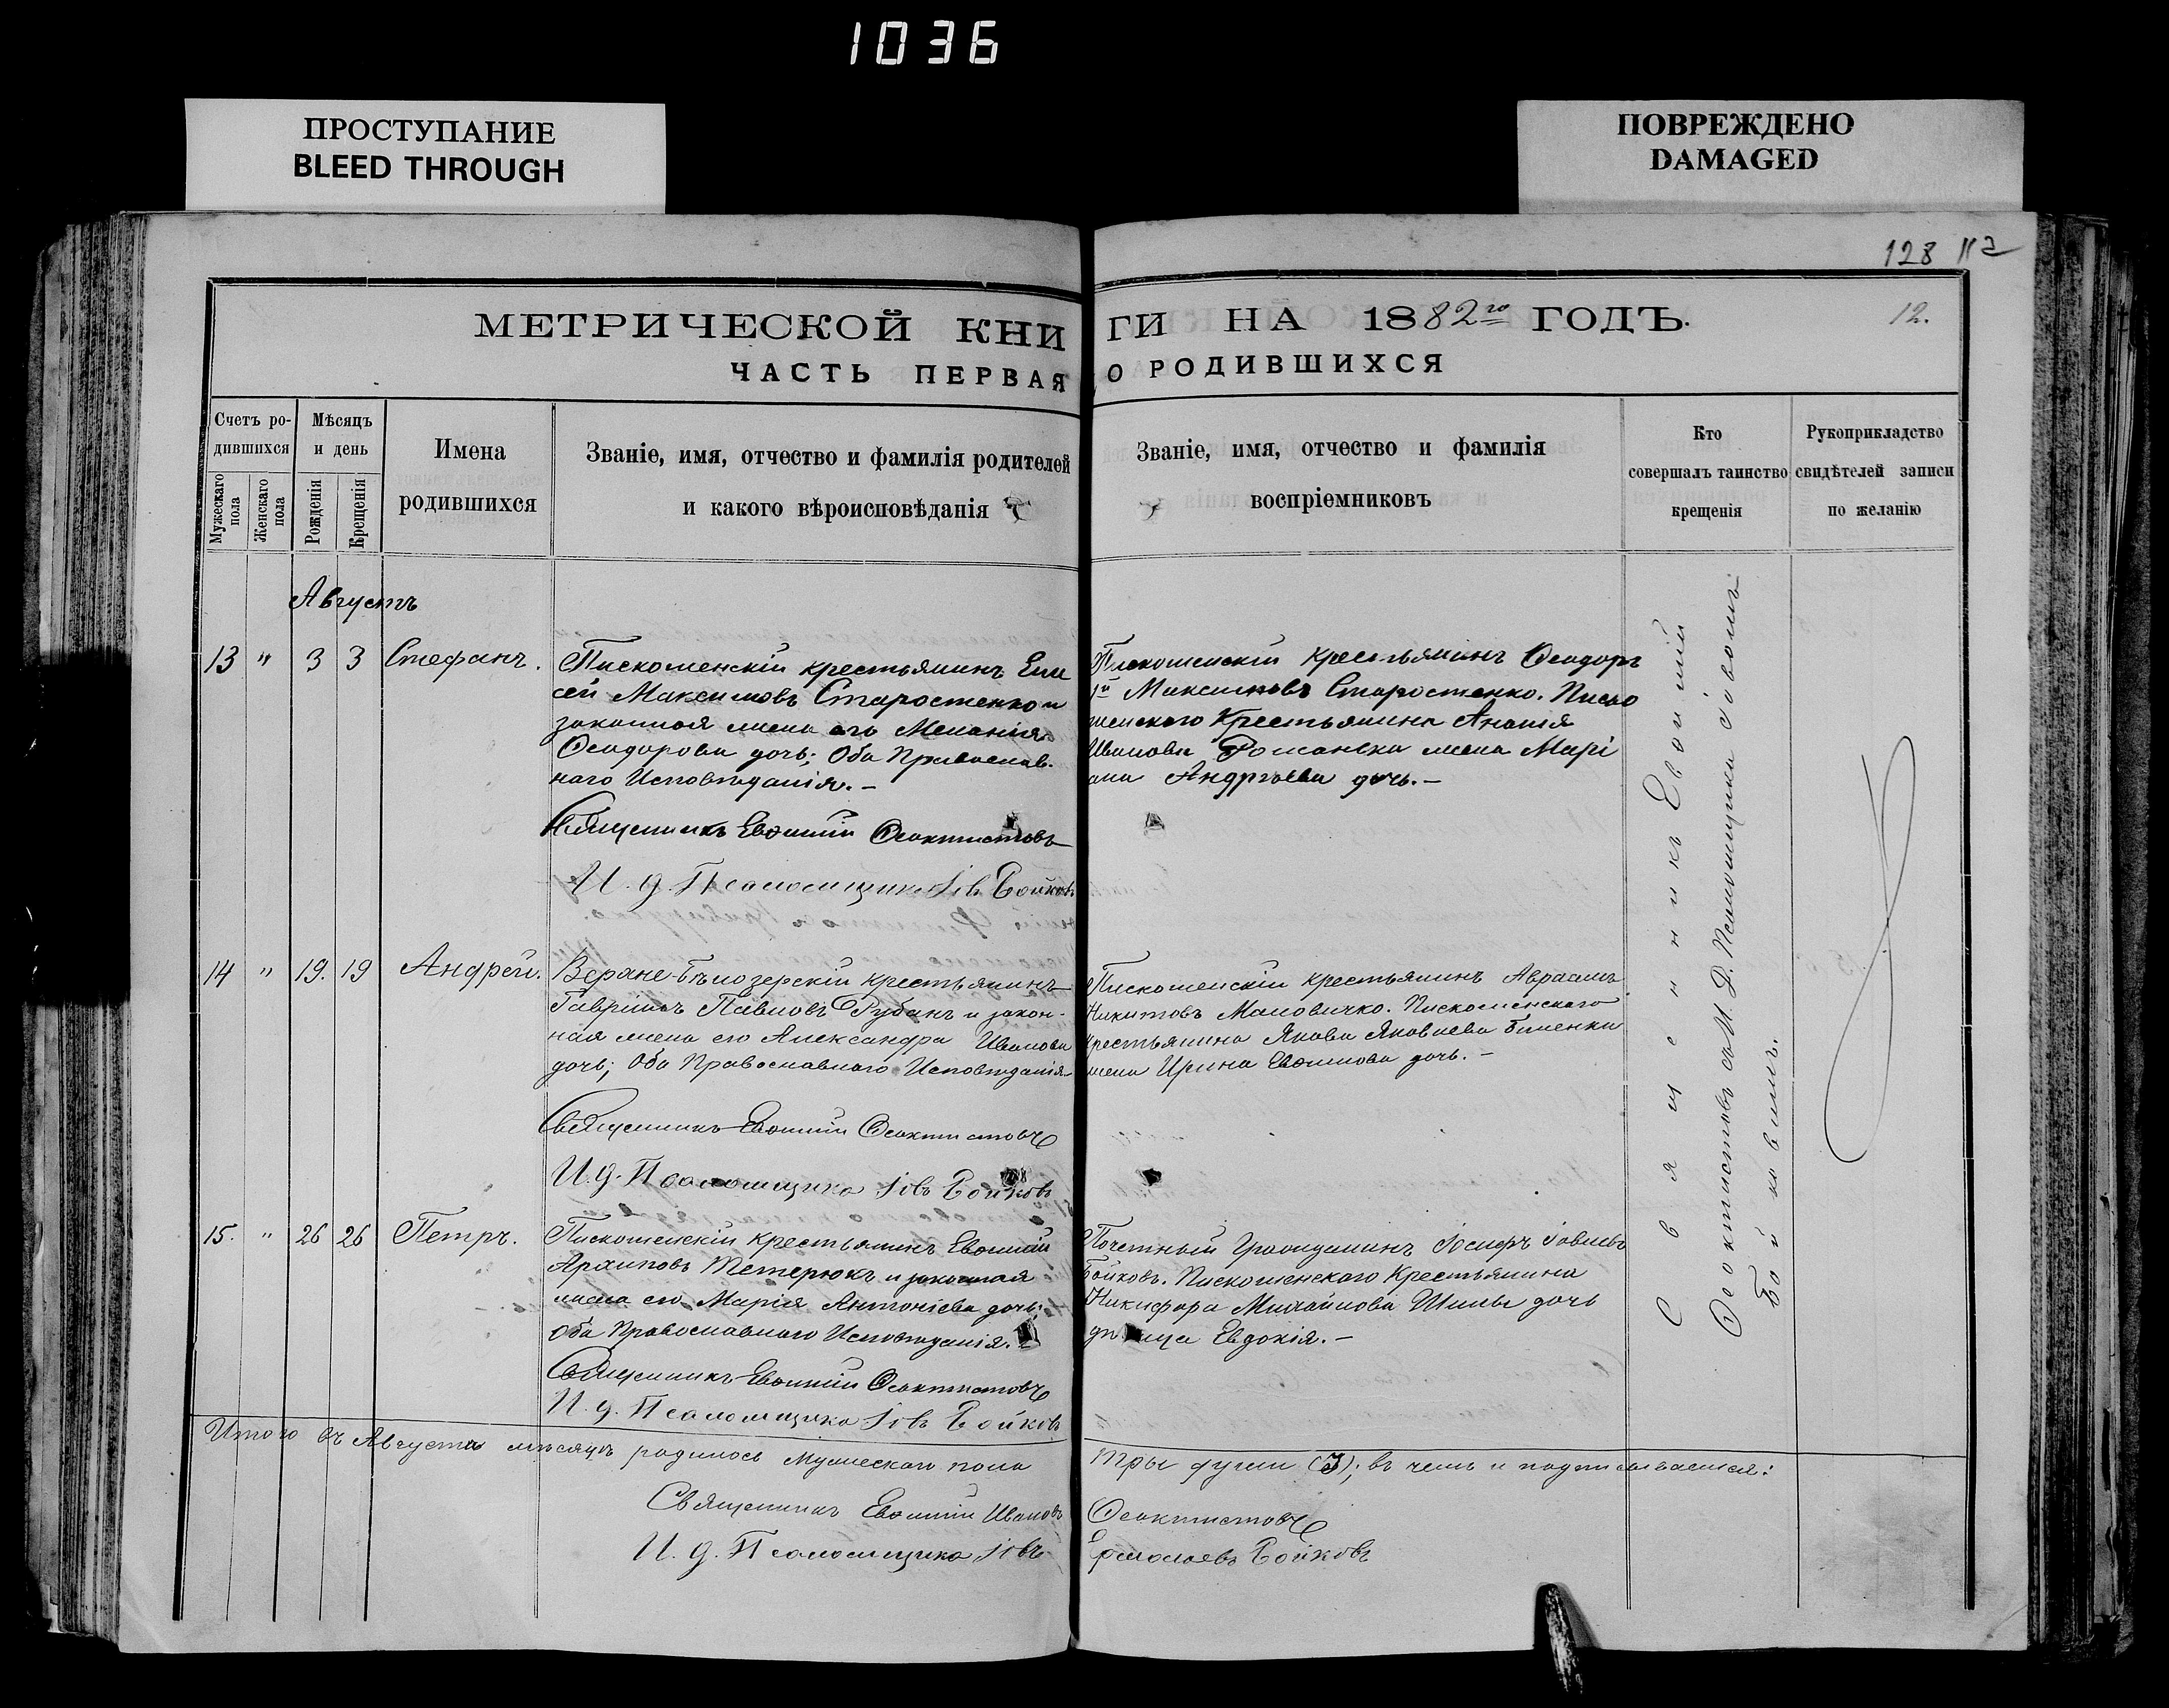 1036
ПРОСТУПАНИЕ
BLEED THROUGH
ПОВРЕЖДЕНО
DAMAGED
128
12.
МЕТРИЧЕСКОЙ КНИГИ НА 1882го ГОДЪ.
ЧАСТЬ ПЕРВАЯ О РОДИВШИХСЯ
Счетъ ро-
дившихся
Мужескаго пола
Женскаго пола
Мѣсяцъ
и день
Рожденія
Крещенія
Имена
родившихся
Званіе, имя, отчество и фамилія родителей
и какого вѣроисповѣданія
Званіе, имя, отчество и фамилія
воспріемниковъ
Кто
совершалъ таинство
крещенія
Рукоприкладство
свидѣтелей записи
по желанію
Августъ
13 " 3 3 Стефанъ.
Пискошенскій крестьянинъ Ели
сей Максимовъ Старостенко и
законная жена его Меланія
Ѳеодорова дочь; Оба Православ-
наго Исповѣданія. —
Священникъ Евѳимій Ѳеоктистовъ
И. д. Псаломщика Іовъ Бойковъ
Пискошенскій крестьянинъ Ѳеодоръ
Максимовъ Старостенко. Писко
шенскаго Крестьянина Ананія
Иванова Романька жена Марі
анна Андрѣева дочь. —
14 " 19. 19 Андрей.
Верхне-Бѣлозерскій крестьянинъ
Гавріилъ Павловъ Рубанъ и закон-
ная жена его Александра Иванова
дочь; Оба Православнаго Исповѣданія
Священникъ Евѳимій Ѳеоктистовъ
И. д. Псаломщика Іовъ Бойковъ
Пискошенскій крестьянинъ Авраамъ
Никитовъ Маловичко. Пискошенскаго
крестьянина Якова Яковлева
жена Ирина Евѳимова дочь. —
15. " 26 26 Петръ.
Пискошенскій Крестьянинъ Евѳимій
Архиповъ Тетерюкъ и законная
жена его Марія Антоніева дочь;
Оба Православнаго Исповѣданія.
Священникъ Евѳимій Ѳеоктистовъ
И. д. Псаломщика Іовъ Бойковъ
Почетный Гражданинъ Іосифъ Іовлевъ
Бойковъ. Пискошенскаго Крестьянина
Никифора Михайлова Шилы дочь
Евдокія. —
Священникъ Евѳимій
Ѳеоктистовъ съ И. Д. Псаломщика Іовомъ
Бойковымъ.
Итого въ Августѣ мѣсяцѣ родилось Мужескаго пола три души (3); въ чемъ и подписываемся:
Священникъ Евѳимій Ивановъ Ѳеоктистовъ
И. д. Псаломщика Іовъ Ермолаевъ Бойковъ